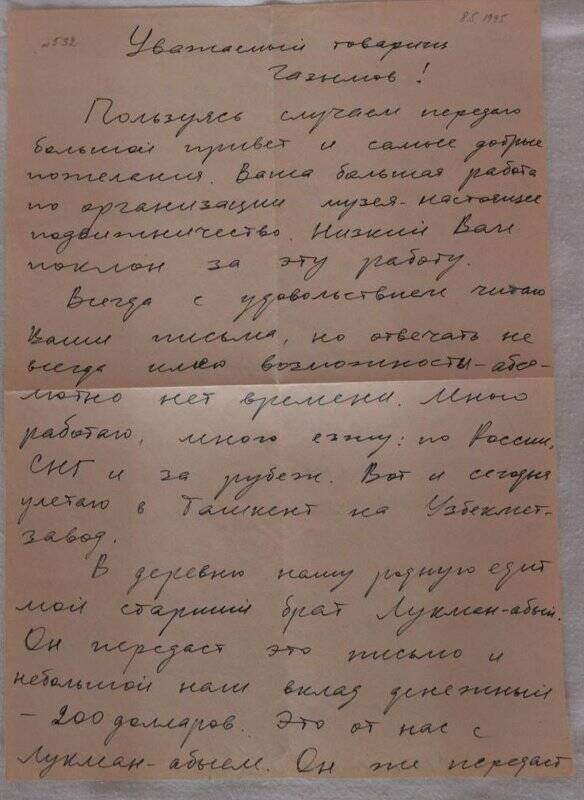 8.5.1995
№532
Уважаемый товарищ
Газымов!
Пользуясь случаем передаю
большой привет и самые добрые
пожелания. Ваша большая работа
по организации музея - настоящее
подвижничество. Низкий Вам
поклон за эту работу.
Всегда с удовольствием читаю
Ваши письма, но отвечать не
всегда имею возможности - абсо-
лютно нет времени. Много
работаю, много езжу: по России,
СНГ и за рубеж. Вот и сегодня
улетаю в Ташкент на Узбекмет-
завод.
В деревню нашу родную едет
мой старший брат Лукман-абый.
Он передаст это письмо и
небольшой наш вклад денежный
- 200 долларов. Это от нас с
Лукман-абыем. Он же передаст